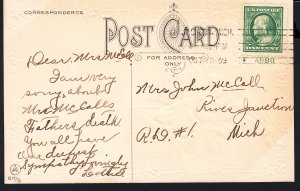 CORRESPONDENCE
POST CARD
FOR ADDRESS
ONLY
U.S. POSTAGE
ONE CENT
Dear Mrs McCall
I am very
sorry about
Mrs McCalls
Fathers death
You all have
our deepest
Sympathy
Mrs John McCall
River Junction
R.D. #1.
Mich